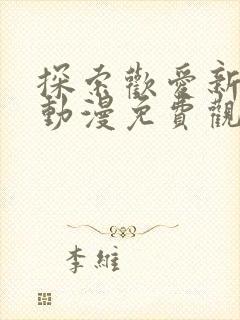 探索歡愛新
動漫免費觀
李維